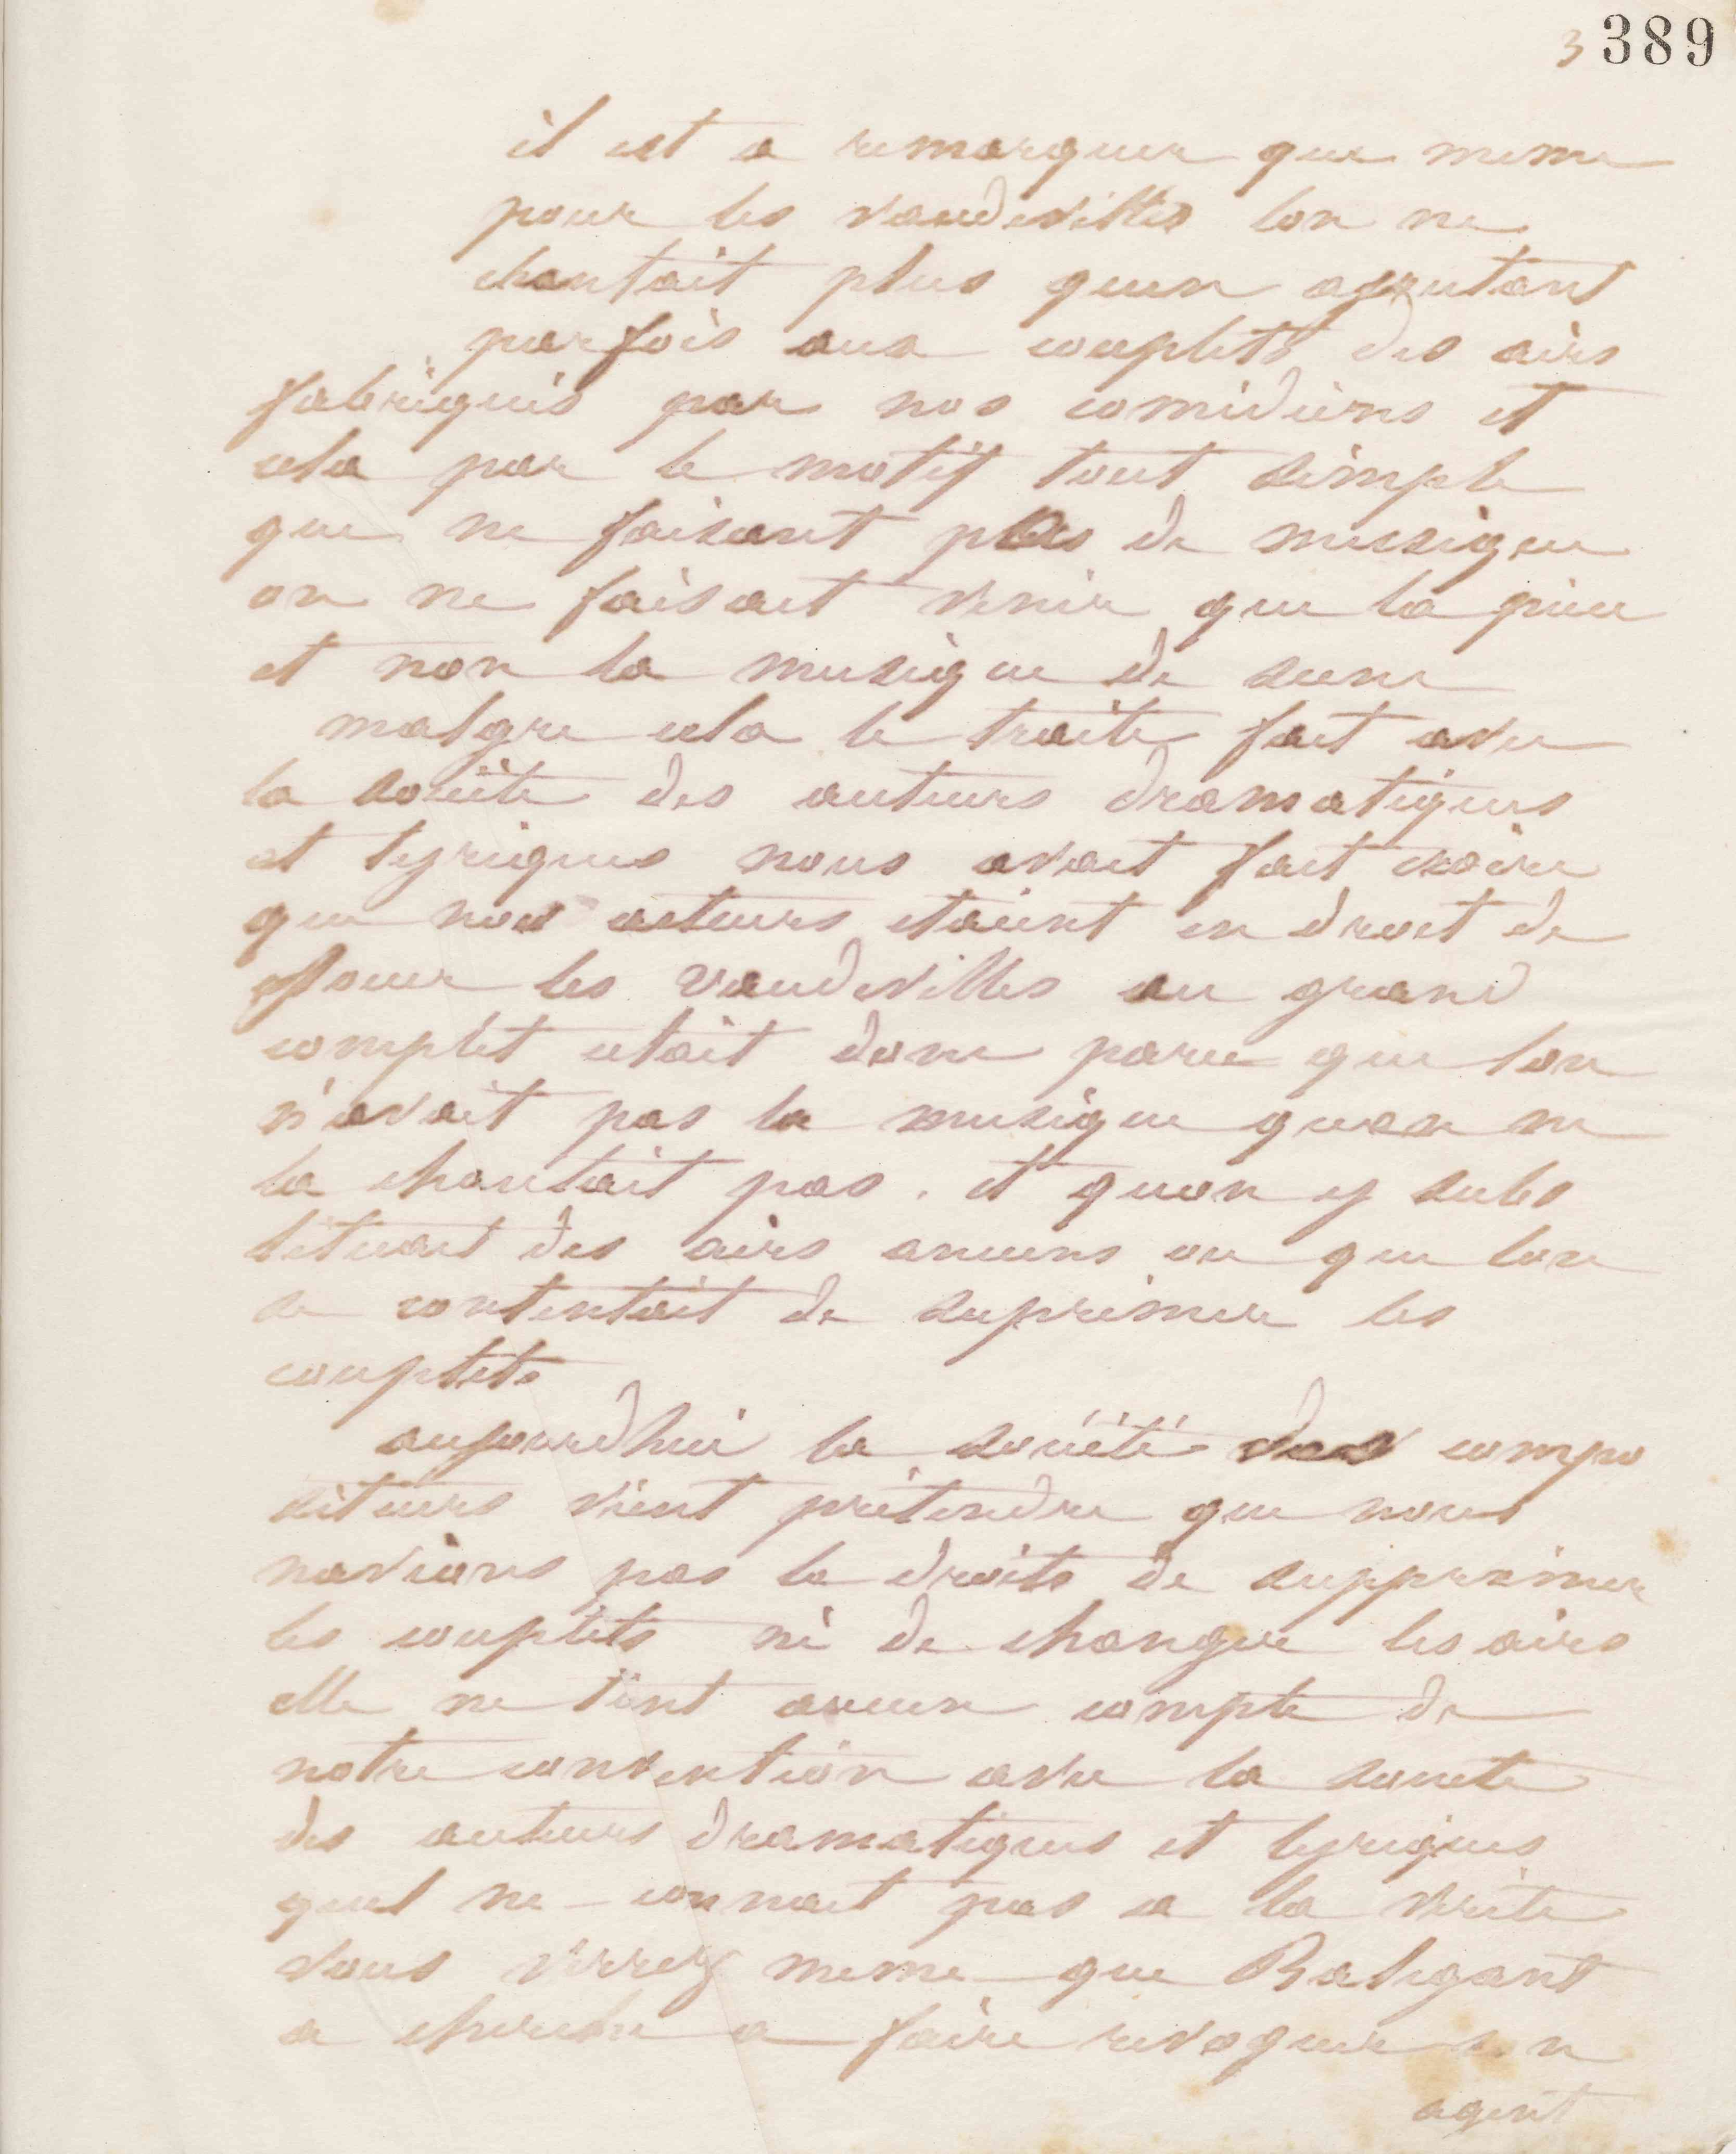 3 389
il est a remarquer que meme
pour les vaudevilles lon ne
chantait plus quen ajoutant
parfois aux couplets des airs
fabriqués par nos comédiens et
cela par le motif tout simple
que ne faisant pas de musique
on ne faisait venir que la piece
et non la musique de scene
malgre cela le traite fait avec
la société des auteurs dramatiques
et lyriques nous avait fait croire
que nos acteurs etaient en droit de
jouer les vaudevilles au grand
complet cetait donc parce que lon
n'avait pas la musique quon ne
la chantait pas. et quon y subs
tituait des airs anciens ou que lon
se contentait de suprimer les
couplets
aujourdhui la société des compo
siteurs vient prétendre que nous
navions pas le droits de supprimer
les couplets ni de changer les airs
elle ne tient aucun compte de
notre convention avec la societe
des auteurs dramatiques et lyriques
quel ne connait pas a la verite
vous verrez meme que Baligant
a cherche a faire revoquer son
agent